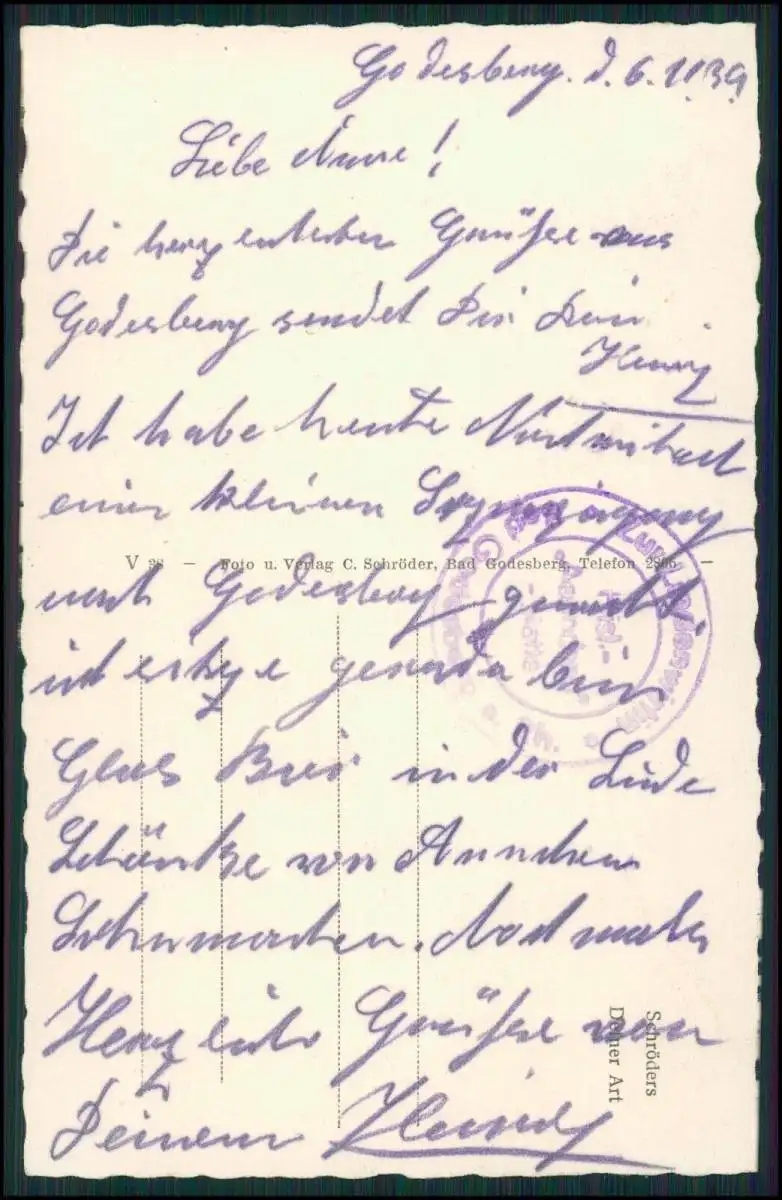 Godesberg. d. 6.11.39
Liebe
Die herzlichsten Grüße aus
Godesberg sendet Dir Dein
Heinz
Ich habe heute Nachmittag
einen kleinen Spaziergang
nach Godesberg gemacht.
und sitze gerade beim
Glas Bier in der Linde
Schänke von Ännchen
Schumacher. Nochmals
Herzliche Grüße von
Deinem Heinz
V 38 — Foto u. Verlag C. Schröder, Bad Godesberg, Telefon 2865 —
Schröders
Dauer Art
Zur Lindenwirtin
Godesberg a. Rh.